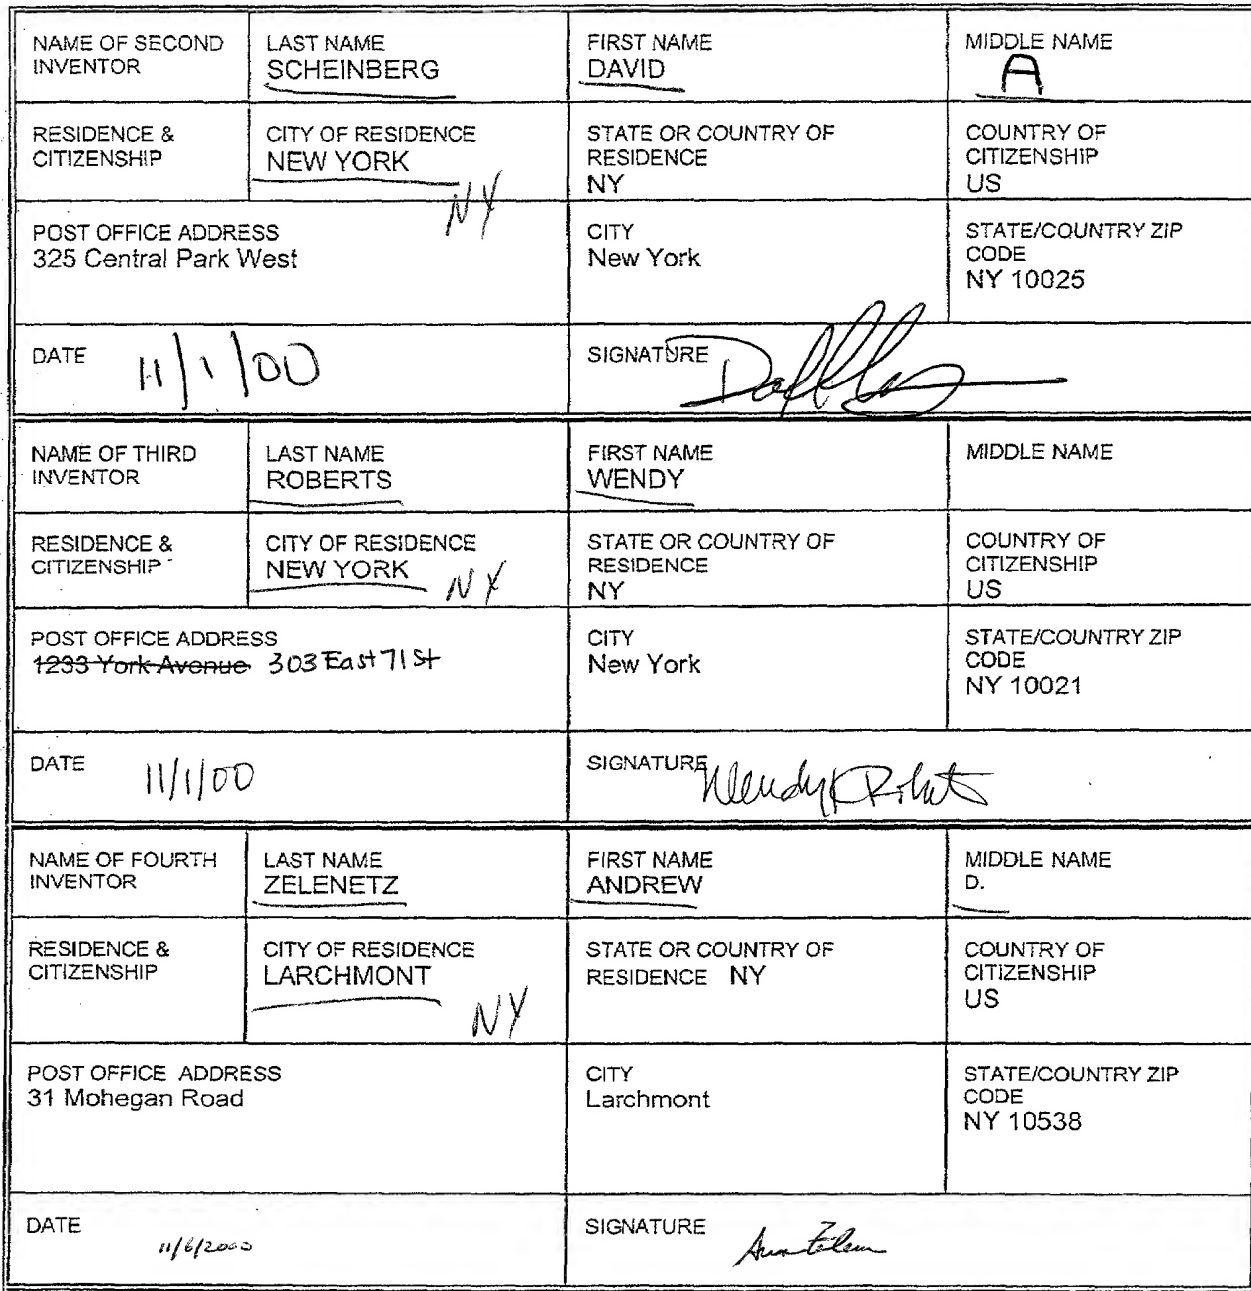 NAME OF SECOND INVENTOR
LAST NAME
SCHEINBERG
FIRST NAME
DAVID
MIDDLE NAME
A
RESIDENCE & CITIZENSHIP
CITY OF RESIDENCE
NEW YORK
NY
STATE OR COUNTRY OF RESIDENCE
NY
COUNTRY OF CITIZENSHIP
US
POST OFFICE ADDRESS
325 Central Park West
CITY
New York
STATE/COUNTRY ZIP CODE
NY 10025
DATE 11/1/00
SIGNATURE
NAME OF THIRD INVENTOR
LAST NAME
ROBERTS
FIRST NAME
WENDY
MIDDLE NAME
RESIDENCE & CITIZENSHIP
CITY OF RESIDENCE
NEW YORK NY
STATE OR COUNTRY OF RESIDENCE
NY
COUNTRY OF CITIZENSHIP
US
POST OFFICE ADDRESS
1233 York Avenue 303 East 71 St
CITY
New York
STATE/COUNTRY ZIP CODE
NY 10021
DATE 11/1/00
SIGNATURE Wendy K Roberts
NAME OF FOURTH INVENTOR
LAST NAME
ZELENETZ
FIRST NAME
ANDREW
MIDDLE NAME
D.
RESIDENCE & CITIZENSHIP
CITY OF RESIDENCE
LARCHMONT
NY
STATE OR COUNTRY OF RESIDENCE NY
COUNTRY OF CITIZENSHIP
US
POST OFFICE ADDRESS
31 Mohegan Road
CITY
Larchmont
STATE/COUNTRY ZIP CODE
NY 10538
DATE 11/6/2000
SIGNATURE